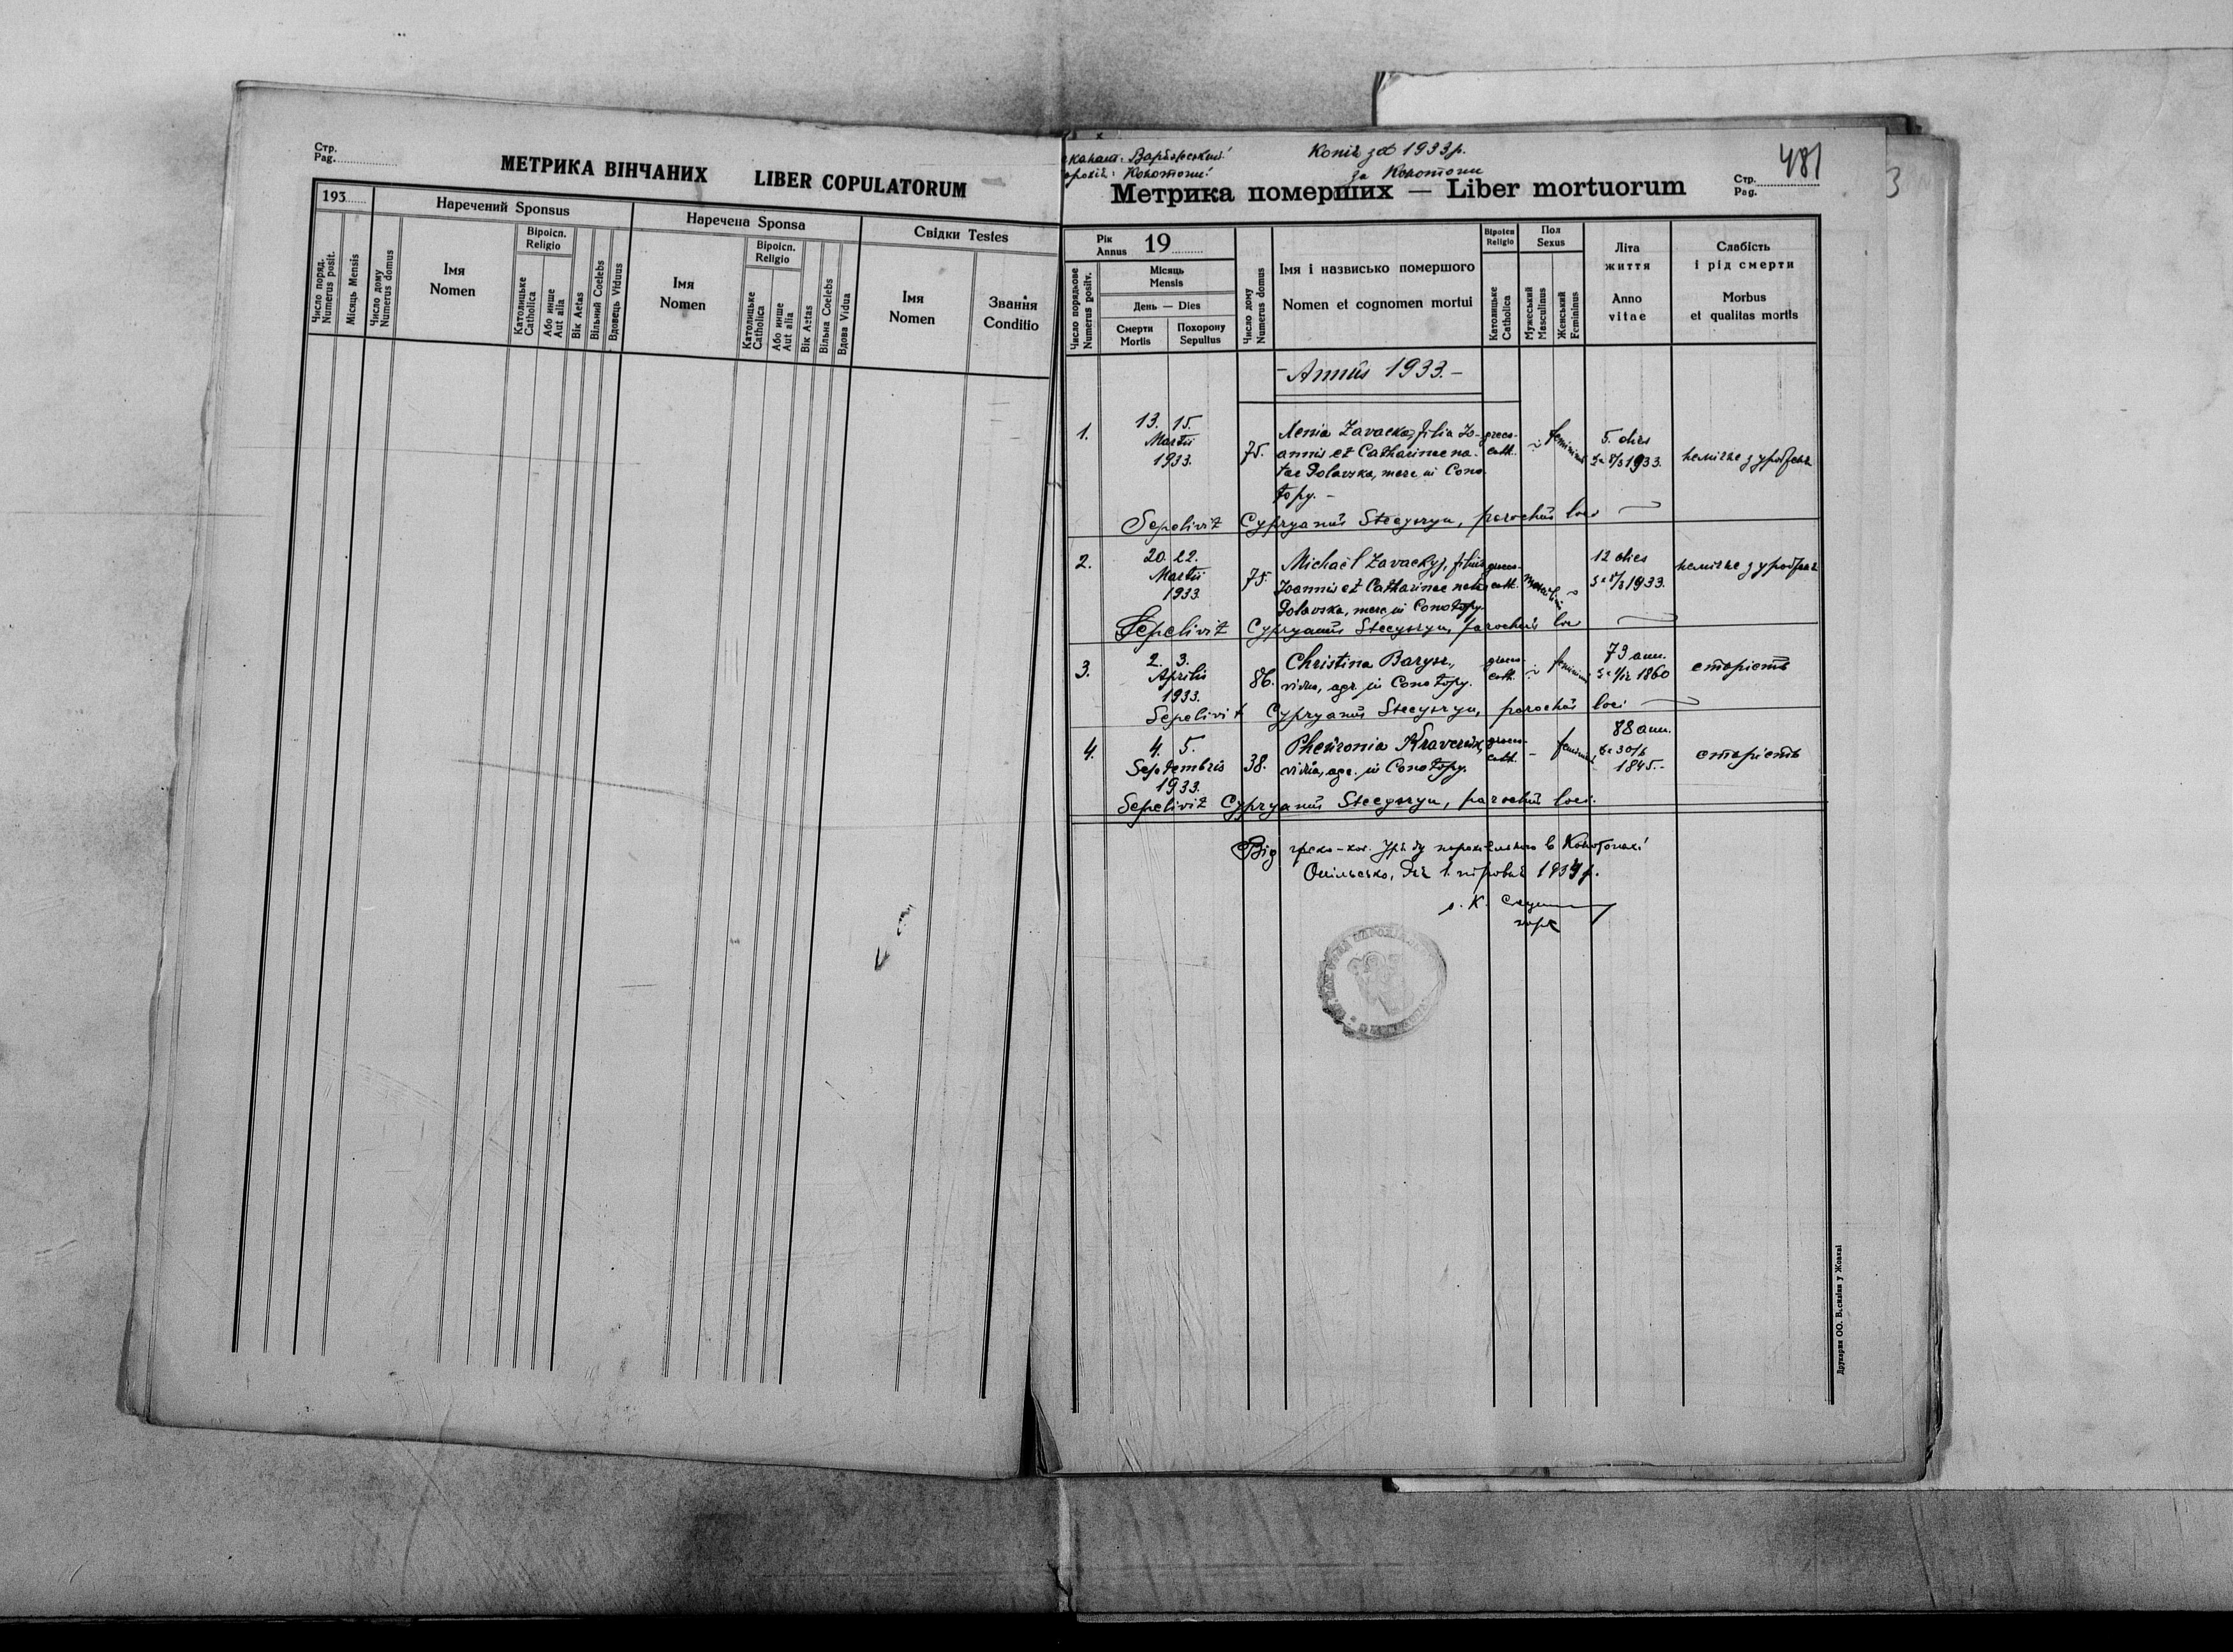 Стр.
Pag.
МЕТРИКА ВІНЧАНИХ LIBER COPULATORUM
193
Наречений Sponsus
Наречена Sponsa
Свідки Testes
Число поряд.
Numerus posit.
Місяць Mensis
Число дому
Numerus domus
Імя
Nomen
Віроісп.
Religio
Католицьке
Catholica
Або инше
Aut alia
Вік Aetas
Вільний Coelebs
Вдовець Viduus
Імя
Nomen
Віроісп.
Religio
Католицьке
Catholica
Або инше
Aut alia
Вік Aetas
Вільна Coelebs
Вдова Vidua
Імя
Nomen
Звання
Conditio
Копія за 1933 р.
за Конотопи
481
3
Метрика померших — Liber mortuorum
Стр.
Pag.
Рік
Annus 19
Число порядкове
Numerus positv.
Місяць
Mensis
День — Dies
Смерти
Mortis
Похорону
Sepultus
Число дому
Numerus domus
Імя і назвисько помершого
Nomen et cognomen mortui
Віроісп
Religio
Католицьке
Catholica
Пол
Sexus
Мужеський
Masculinus
Женський
Femininus
Літа
життя
Anno
vitae
Слабість
і рід смерти
Morbus
et qualitas mortis
- Annus 1933. -
1.
13. 15.
Martii
1933.
75.
Zavacka, filia Jo-
annis et Catharinae na-
tae Polavska, merc. in Cono
topy. -
graeco-
cath.
feminin
5. dies
1933.
Sepelivit Cypryanus Stecyszyn, parochus loci
2.
20. 22.
Martii
1933.
75.
Michaël Zavackyj, filius
Joannis et Catharinae natae
Polavska, merc. in Conotopy.
graeco-
cath.
12 dies
1933.
Sepelivit Cypryanus Stecyszyn, parochus loci
3.
2. 3.
Aprilis
1933.
86.
Christina
vidua, agr. in Conotopy.
graeco-
cath.
73 ann.
1860
старість
Sepelivit Cypryanus Stecyszyn, parochus loci
4.
4. 5.
Septembris
1933.
38.
Pheuronia
vidua, agr. in Conotopy.
graeco-
cath.
88 ann.
30/6
1845.-
старість
Sepelivit Cypryanus Stecyszyn, parochus loci.
Від греко-кат. Уряду парохіяльного в Конотопах
1934 р.
Друкарня ОО. Василіян у Жовкві